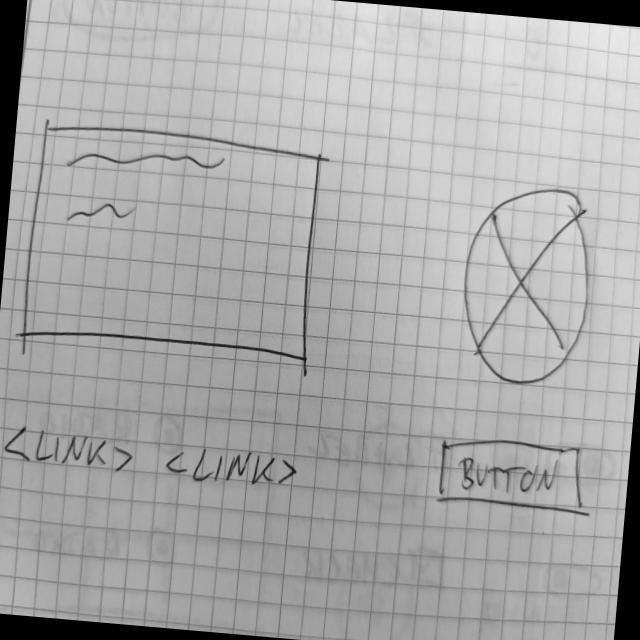 <LINK> <LINK> BUTTON